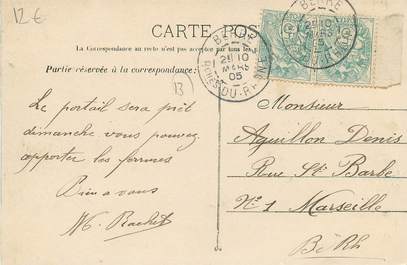 12€
CARTE POS
La Correspondance au recto n'est pas acceptée par tous les p
Partie réservée à la correspondance:
BERRE
2E 10
MARS
05
BCHES-DU-RHONE
BERRE
2E 10
MARS
05
13)
Le portail sera prêt
dimanche vous pouvez
apporter les ferrures
Bien a vous
Monsieur
Aquillon Denis
Rue St Barbe
N° 1 Marseille
B. Rh